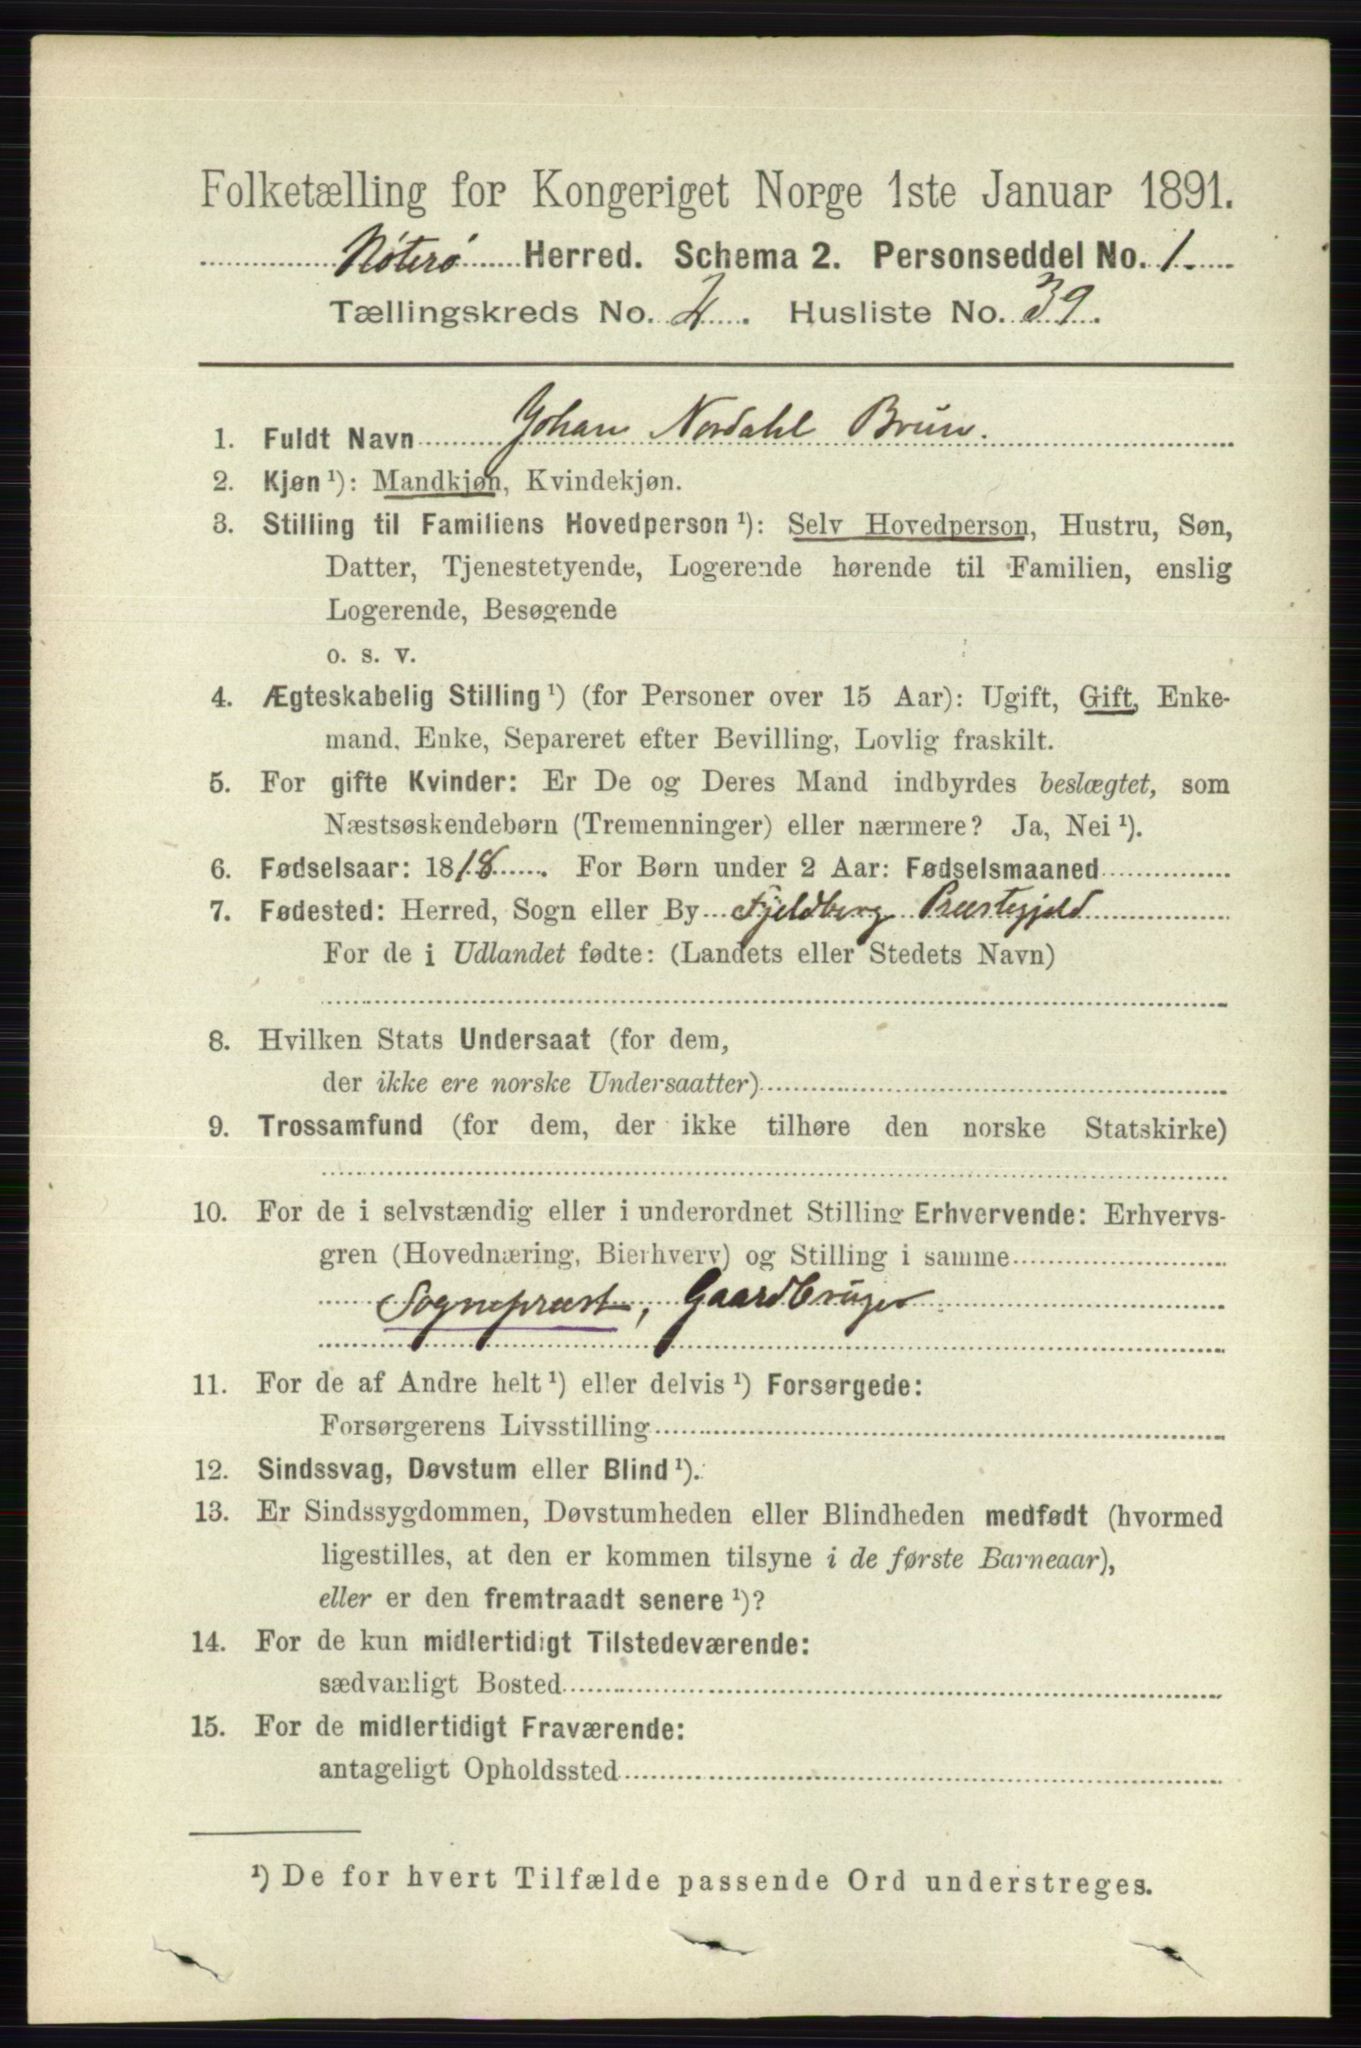 Folketælling for Kongeriget Norge 1ste Januar 1891.
Nøterø Herred. Schema 2. Personseddel No. 1.
Tællingskreds No. 2. Husliste No. 39.
1. Fuldt Navn Johan Nordahl Brun.
2. Kjøn ¹): Mandkjøn, Kvindekjøn.
3. Stilling til Familiens Hovedperson ¹): Selv Hovedperson, Hustru, Søn,
Datter, Tjenestetyende, Logerende hørende til Familien, enslig
Logerende, Besøgende
o. s. v.
4. Ægteskabelig Stilling ¹) (for Personer over 15 Aar): Ugift, Gift, Enke-
mand, Enke, Separeret efter Bevilling, Lovlig fraskilt.
5. For gifte Kvinder: Er De og Deres Mand indbyrdes beslægtet, som
Næstsøskendebørn (Tremenninger) eller nærmere? Ja, Nei ¹).
6. Fødselsaar: 1818. For Børn under 2 Aar: Fødselsmaaned
7. Fødested: Herred, Sogn eller By Fjeldberg Præstegjeld
For de i Udlandet fødte: (Landets eller Stedets Navn)
8. Hvilken Stats Undersaat (for dem,
der ikke ere norske Undersaatter)
9. Trossamfund (for dem, der ikke tilhøre den norske Statskirke)
10. For de i selvstændig eller i underordnet Stilling Erhvervende: Erhvervs-
gren (Hovednæring, Bierhverv) og Stilling i samme
Sognepræst, Gaardbruger.
11. For de af Andre helt ¹) eller delvis ¹) Forsørgede:
Forsørgerens Livsstilling
12. Sindssvag, Døvstum eller Blind ¹).
13. Er Sindssygdommen, Døvstumheden eller Blindheden medfødt (hvormed
ligestilles, at den er kommen tilsyne i de første Barneaar),
eller er den fremtraadt senere ¹)?
14. For de kun midlertidigt Tilstedeværende:
sædvanligt Bosted
15. For de midlertidigt Fraværende:
antageligt Opholdssted
¹) De for hvert Tilfælde passende Ord understreges.